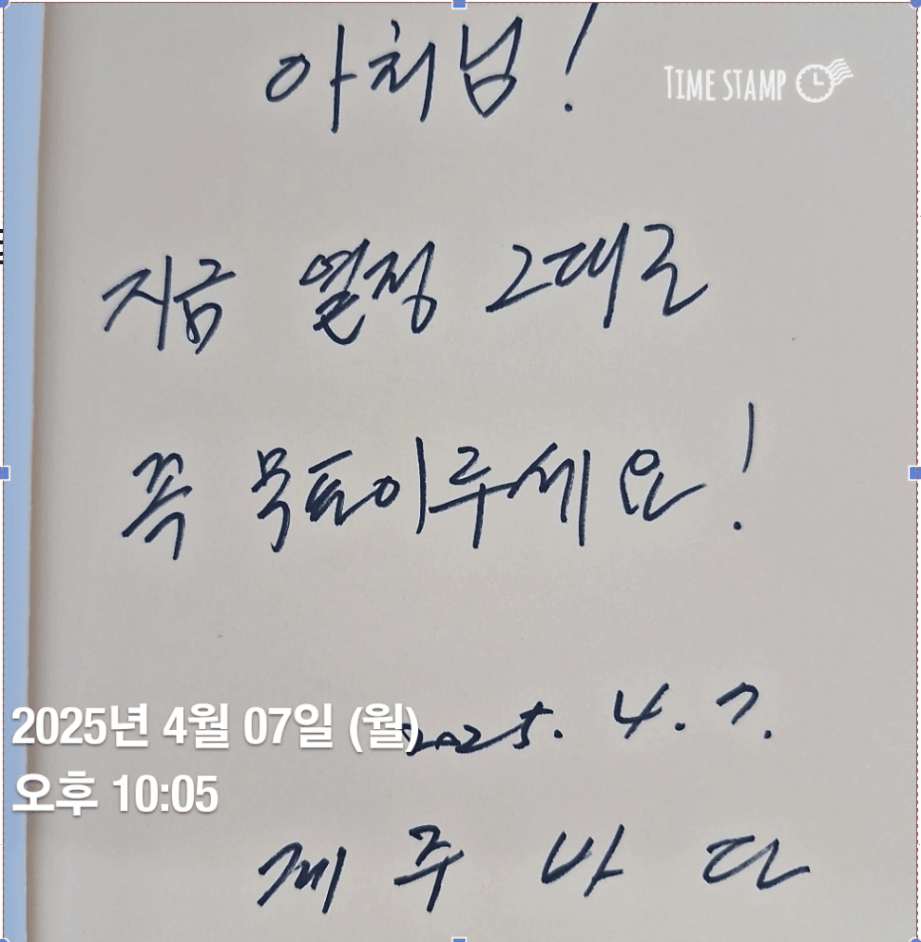 아처님!
TIME STAMP
지금 열정 그대로
꼭 목표이루세요!
2025. 4. 7.
2025년 4월 07일 (월)
오후 10:05
제주바다